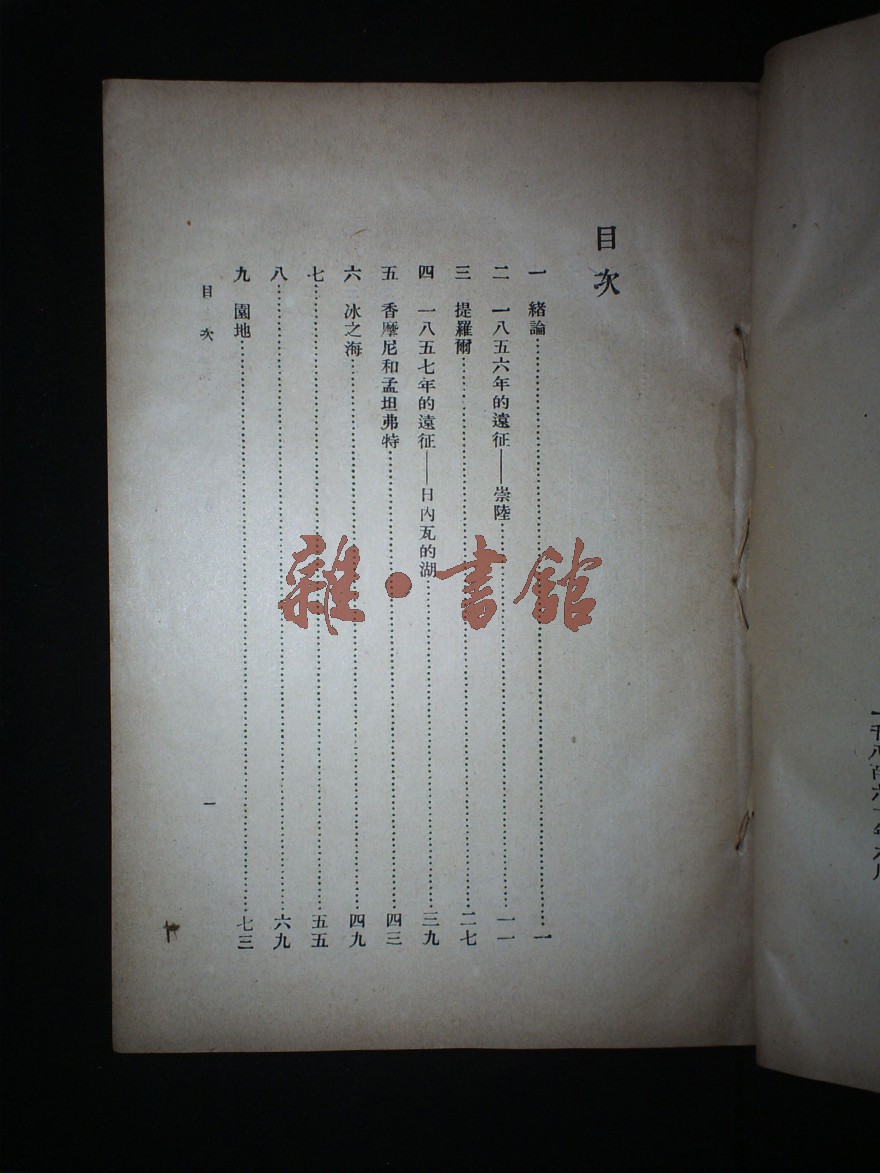 目次
一 緒論……一
二 一八五六年的遠征——崇陸……一一
三 提羅爾……二七
四 一八五七年的遠征——日內瓦的湖……三九
五 香摩尼和孟坦弗特……四三
六 冰之海……四九
七……五五
八……六九
九 園地……七三
目次
一
雜·書館